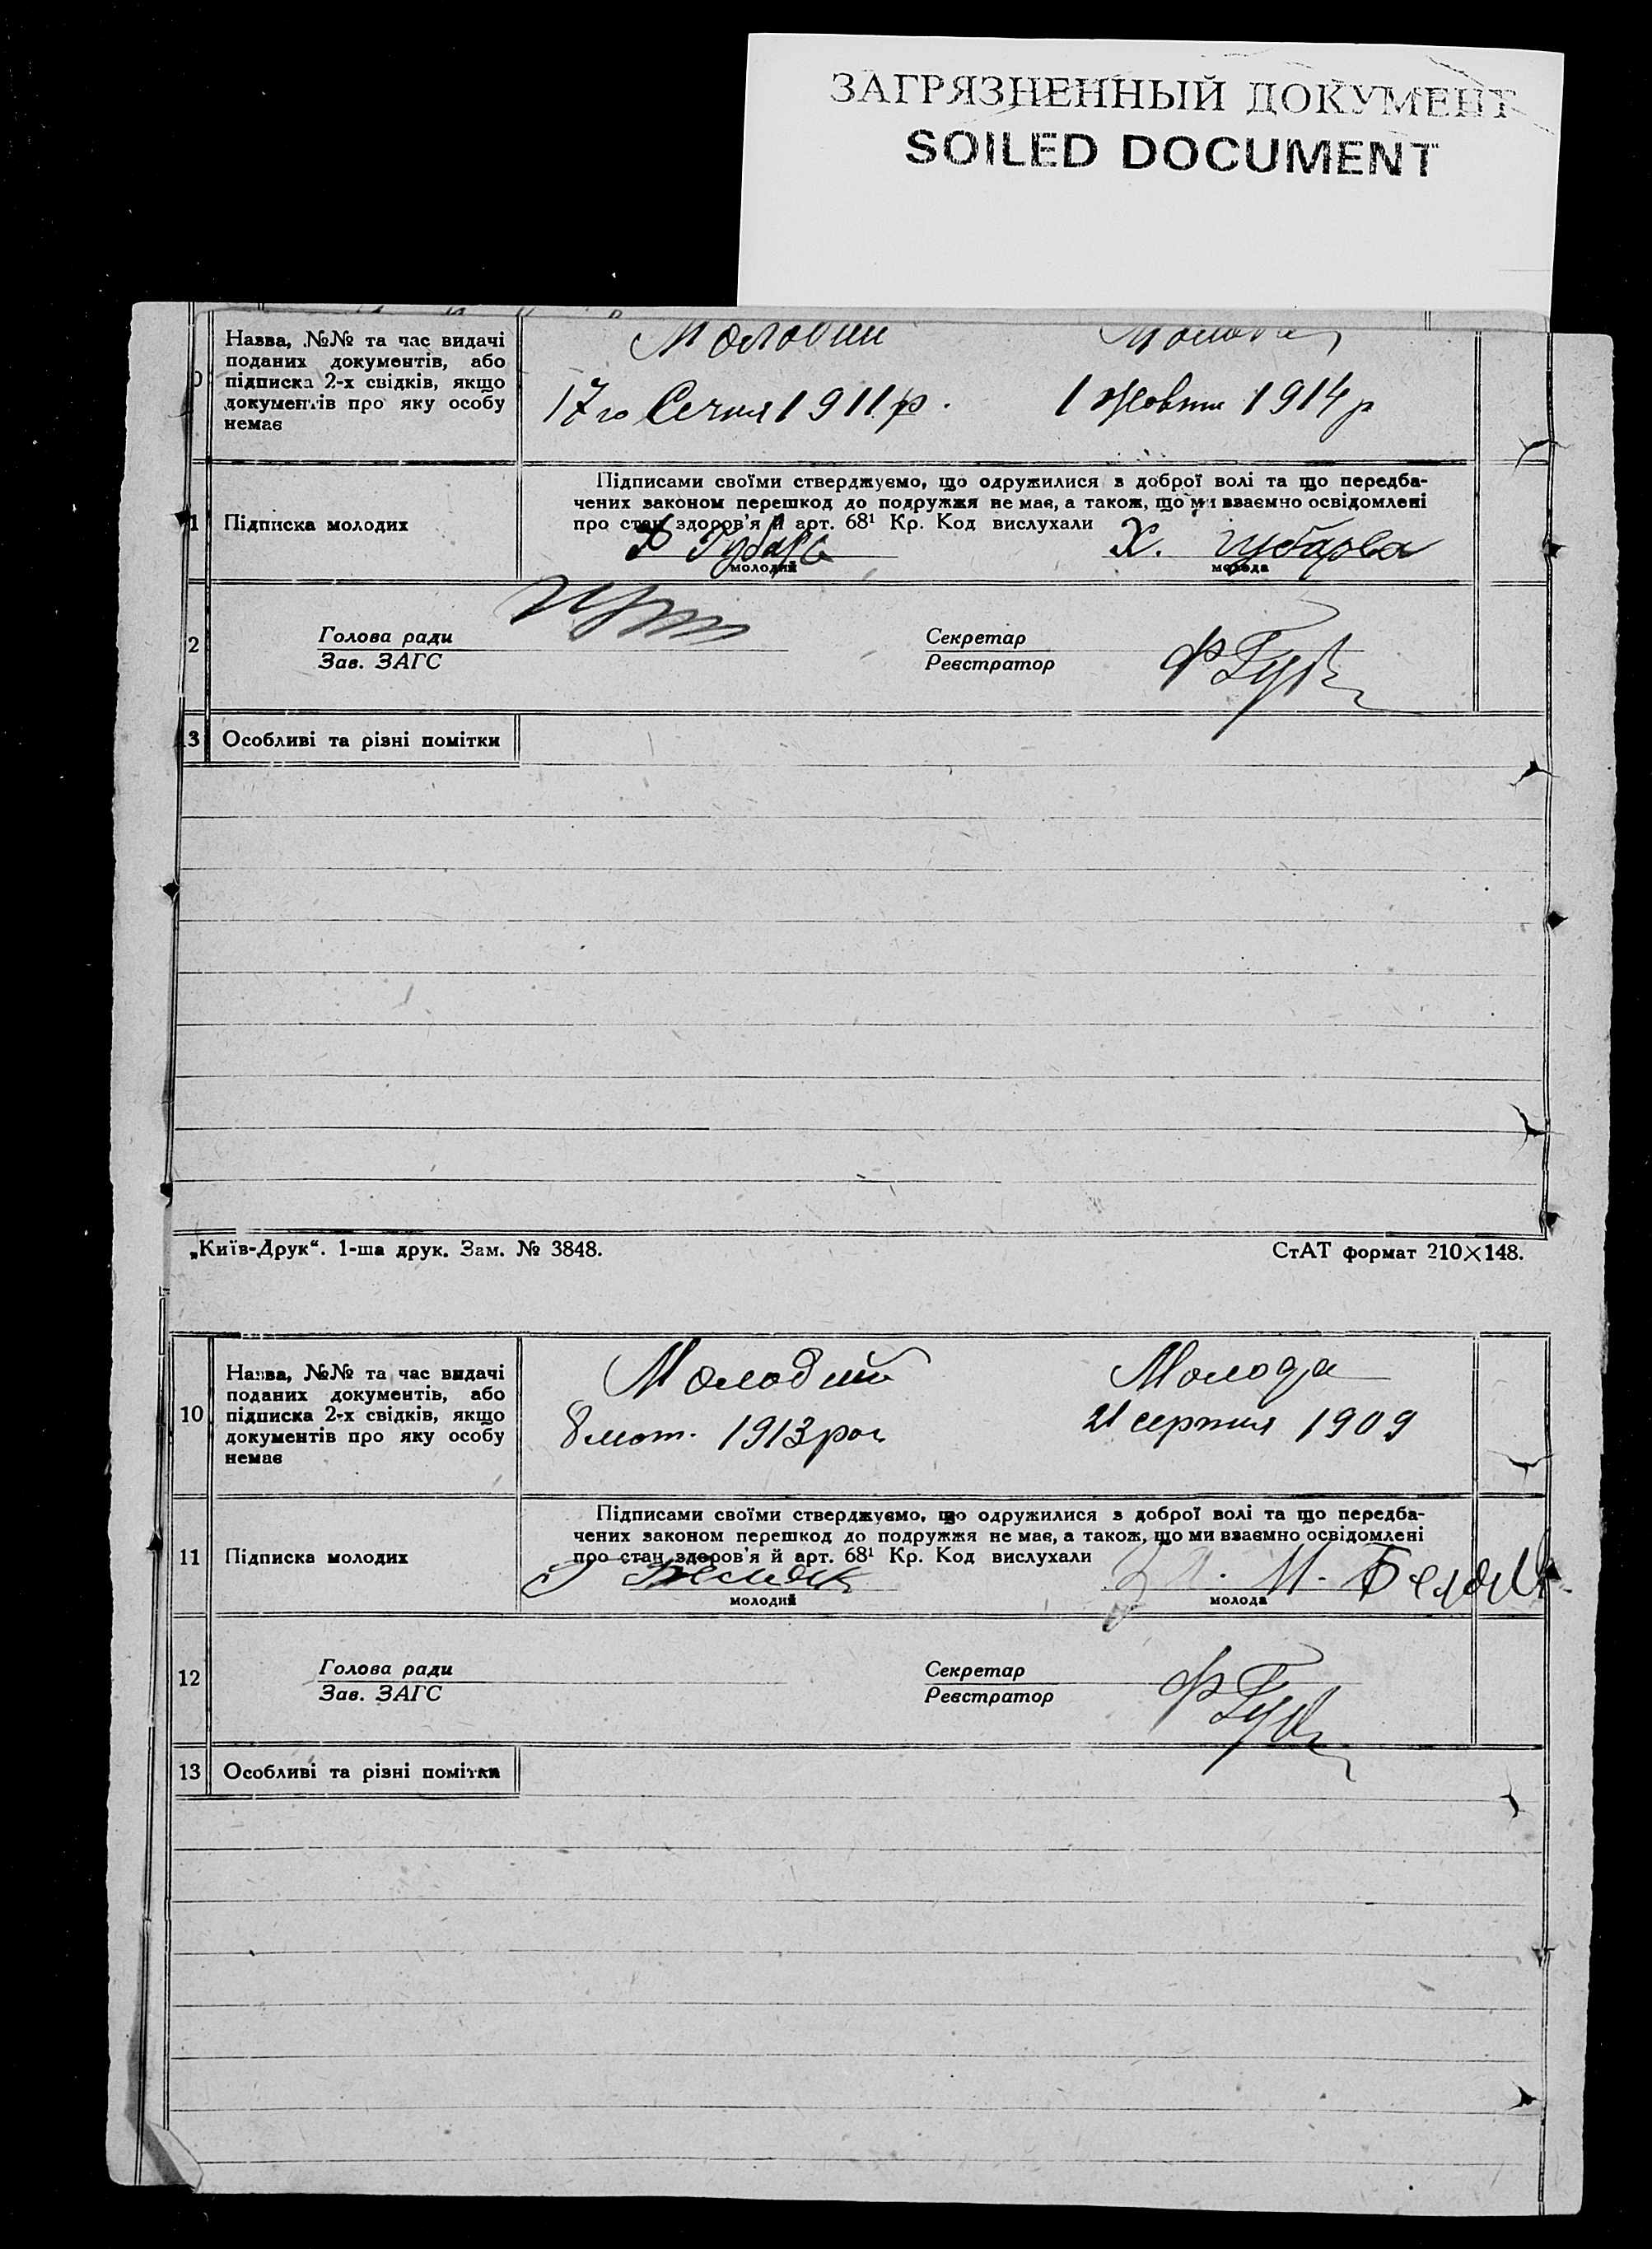 ЗАГРЯЗНЕННЫЙ ДОКУМЕНТ
SOILED DOCUMENT
Назва, №№ та час видачі
поданих документів, або
підписка 2-х свідків, якщо
документів про яку особу
немає
Молодий Молода
17го Січня 1911 р. 1 Жовтн 1914 р
1 Підписка молодих
Підписами своїми стверджуємо, що одружилися з доброї волі та що передба-
чених законом перешкод до подружжя не має, а також, що ми взаємно освідомлені
про стан здоров'я й арт. 68¹ Кр. Код вислухали
Х. губарва
молодий молода
2 Голова ради Секретар
Зав. ЗАГС Реєстратор
3 Особливі та різні помітки
„Київ-Друк“. 1-ша друк. Зам. № 3848. СтАТ формат 210×148.
10 Назва, №№ та час видачі
поданих документів, або
підписка 2-х свідків, якщо
документів про яку особу
немає
Молодий Молода
8 лют. 1913 рок 21 серпня 1909
11 Підписка молодих
Підписами своїми стверджуємо, що одружилися з доброї волі та що передба-
чених законом перешкод до подружжя не має, а також, що ми взаємно освідомлені
про стан здоров'я й арт. 68¹ Кр. Код вислухали
молодий молода
12 Голова ради Секретар
Зав. ЗАГС Реєстратор
13 Особливі та різні помітки